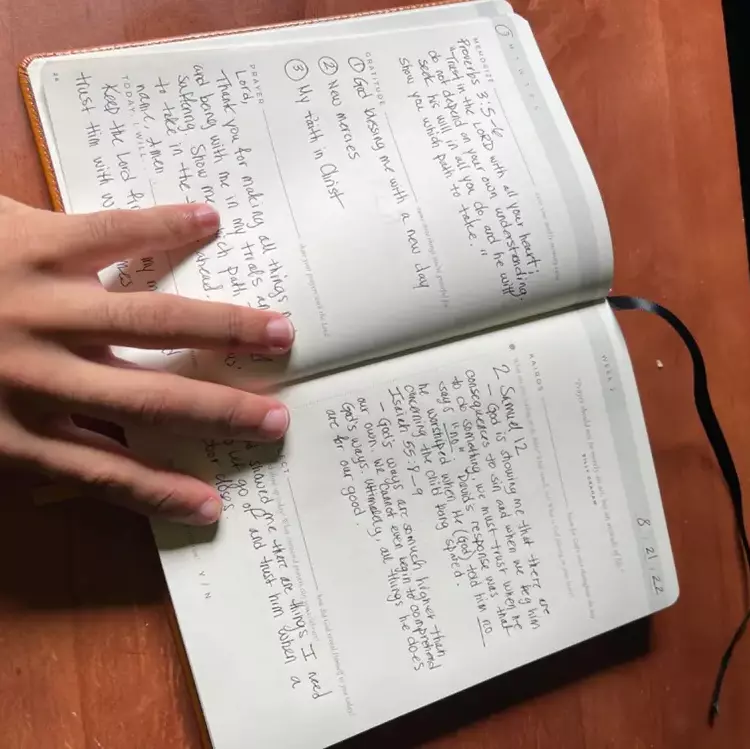 MEMORIZE
Proverbs 3:5-6
"Trust in the LORD with all your heart;
do not depend on your own understanding.
Seek his will in all you do, and he will
show you which path to take."
GRATITUDE
① God blessing me with a new day
② New mercies
③ My Faith in Christ
PRAYER
Lord,
Thank you for making all things
and being with me in my trials
suffering. Show me which path
to take in the ahead.
name, Amen
TODAY I WILL
Keep the Lord
trust Him with
20
WEEK
8 21 22
BILLY GRAHAM
KAIROS
2 Samuel 12
- God is showing me that there are
consequences to sin and when we beg him
to do something, we must trust when He
says "no". David's response was that
he worshiped when He (God) told him no
concerning the child being spared.
Isaiah 55:8-9
- God's ways are so much higher than
our own. We cannot even begin to comprehend
God's ways. Ultimately, all things he does
are for our good.
showed me there are things I need
let go of and trust him when a
door closes.
Y / N